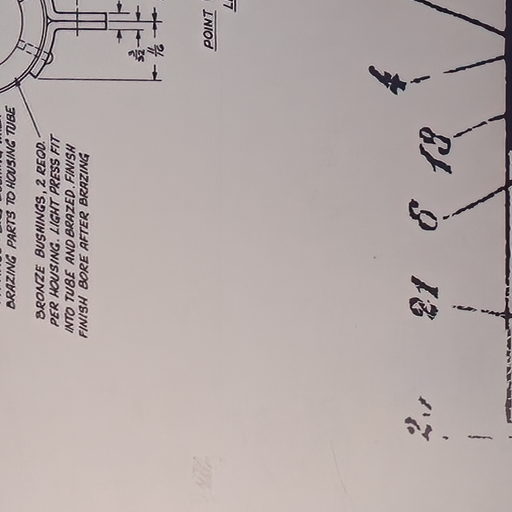 BRAZING PARTS TO HOUSING TUBE
BRONZE BUSHINGS, 2 REQD.
PER HOUSING. LIGHT PRESS FIT
INTO TUBE AND BRAZED. FINISH
FINISH BORE AFTER BRAZING
3/32
11/16
POINT
4
13
8
21